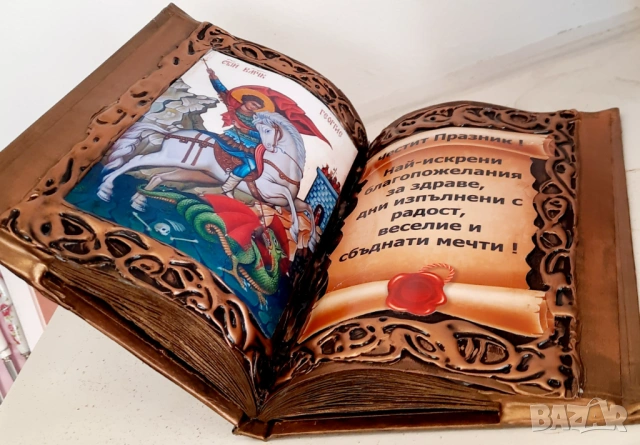 СВИ ВМЧК
ГЕОРГИЮ
Честит Празник !
Най-искрени
благопожелания
за здраве,
дни изпълнени с
радост,
веселие и
сбъднати мечти !
BAZAR